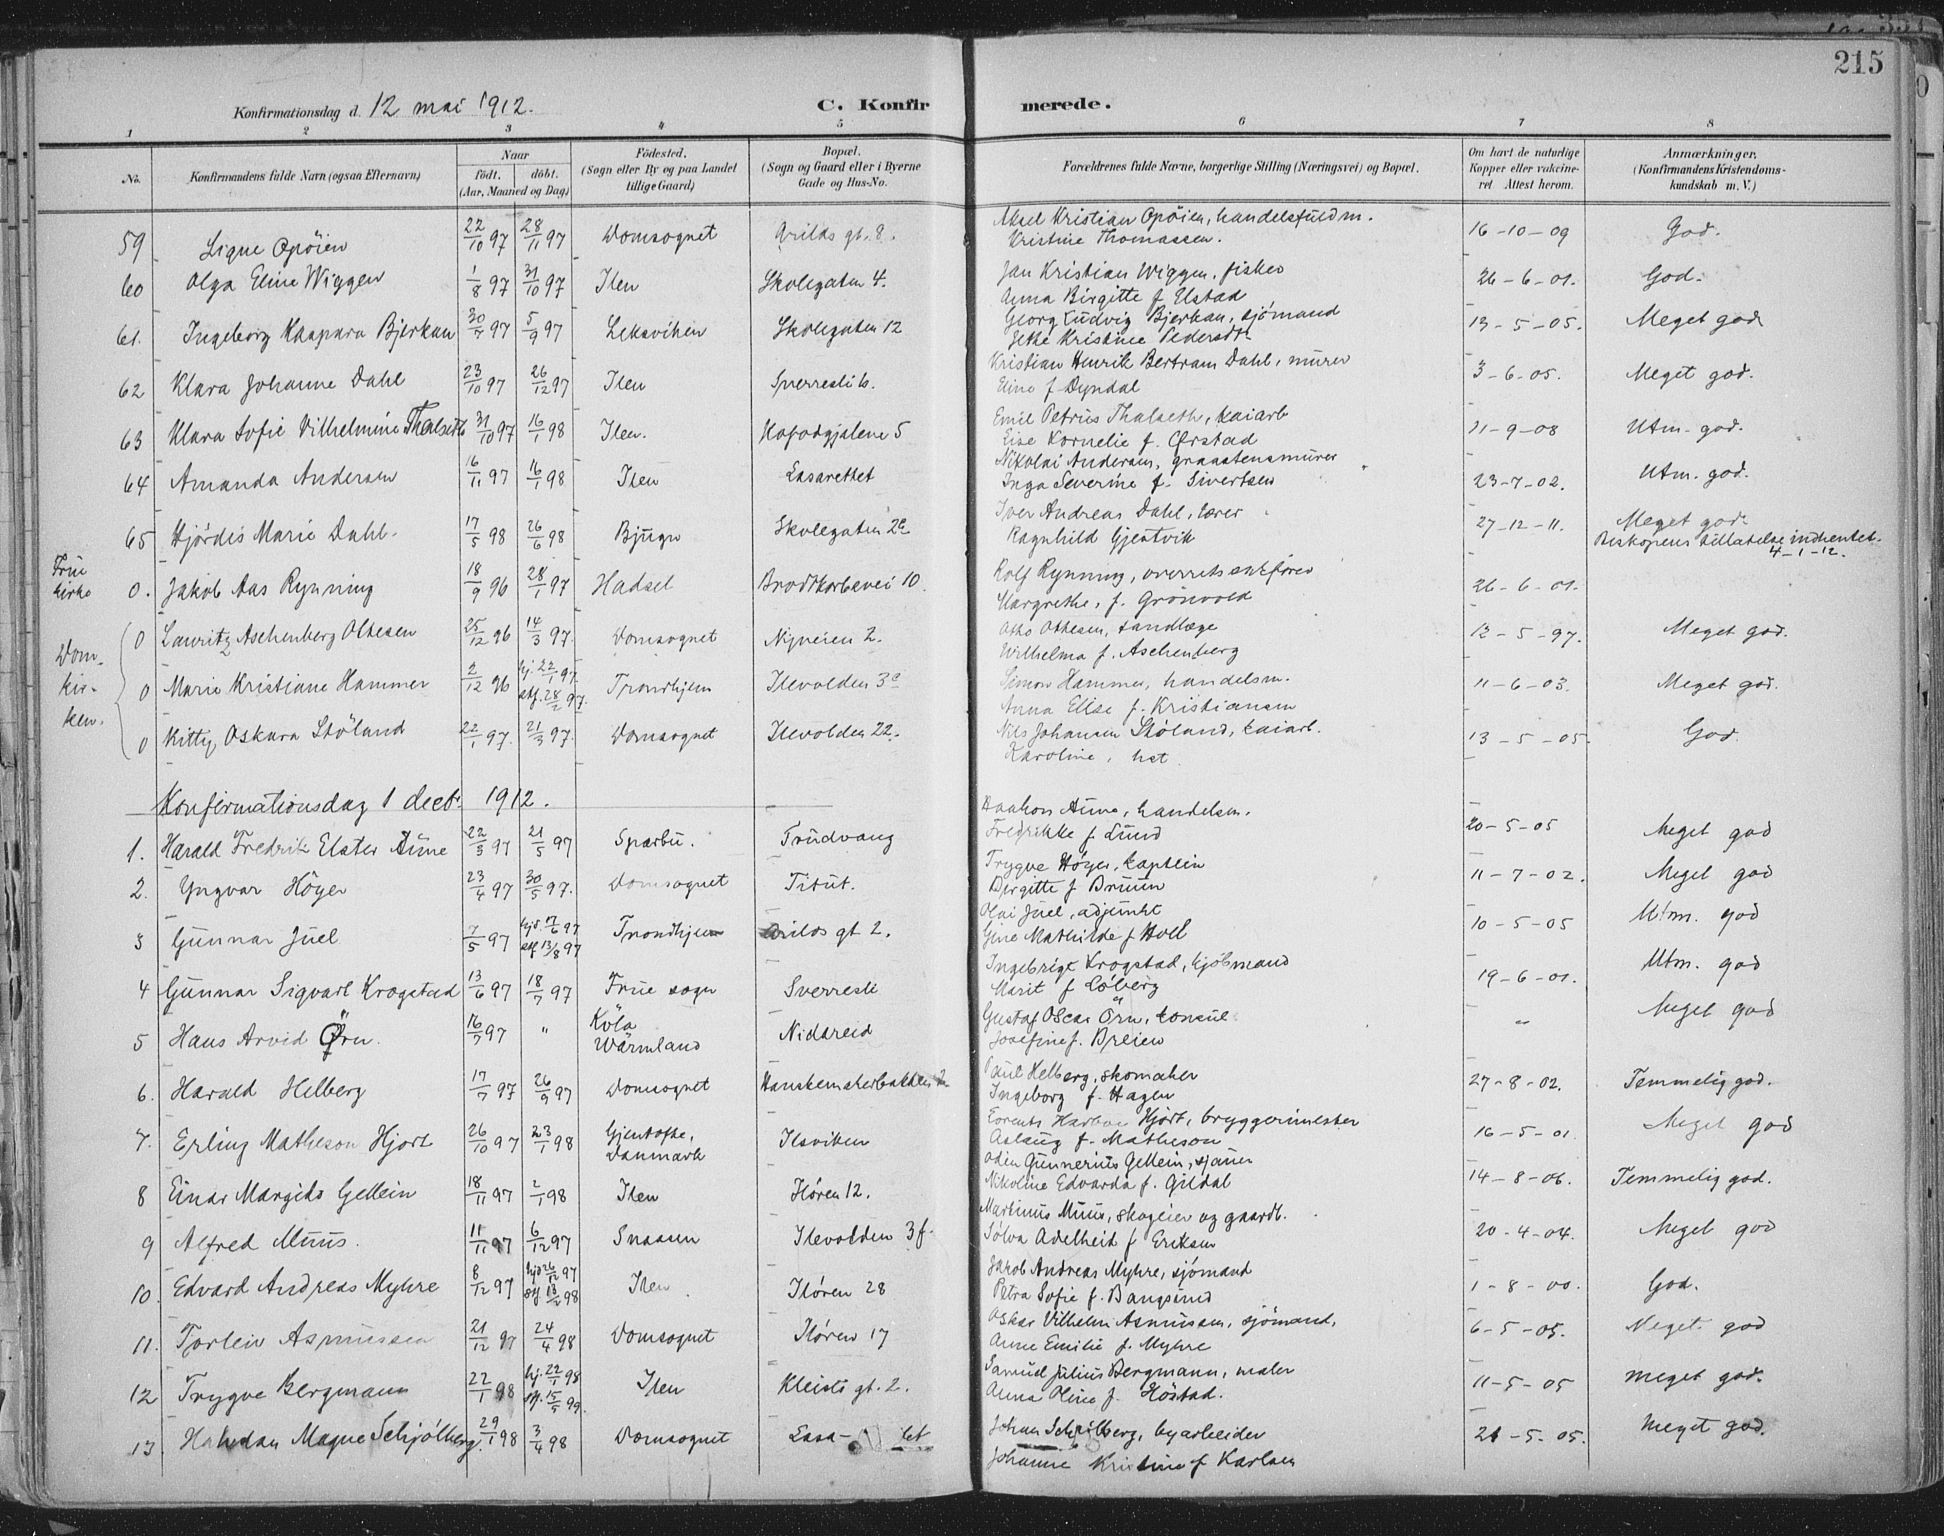 215
Konfirmationsdag d. 12 mai 1912.
C. Konfirmerede.
1 2 3 4 5 6 7 8
No.
Konfirmandens fulde Navn (ogsaa Efternavn)
Naar
födt. döbt.
(Aar, Maaned og Dag)
Födested.
(Sogn eller By og paa Landet
tillige Gaard)
Bopæl.
(Sogn og Gaard eller i Byerne
Gade og Hus-No.
Forældrenes fulde Navne, borgerlige Stilling (Næringsvei) og Bopæl.
Om havt de naturlige
Kopper eller vakcine-
ret. Attest herom.
Anmærkninger.
(Konfirmandens Kristendoms-
kundskab m. V.)
59 Signe Opöien 22/10 97 28/11 97 Domsognet Arilds gt. 8. Aksel Kristian Opöien, handelsfuldm. 16-10-09 God.
Kristine Thomassen.
60 Olga Eline Wiggen 1/8 97 31/10 97 Ilen Skolegaten 4. Jan Kristian Wiggen, fisker 26-6-01. God.
Anna Birgitte f. Elstad
61. Ingeborg Kaspara Bjerkan 30/7 97 5/9 97 Leksviken Skolegaten 12 Georg Ludvig Bjerkan, sjömand 13-5-05. Meget god
Jette Kristine Pedersdtr
62 Klara Johanne Dahl 23/10 97 26/12 97 Ilen Sverresli 6. Kristian Henrik Bertram Dahl, murer 3-6-05. Meget god.
Eline f. Dyndal
63 Klara Sofie Vilhelmine Thalseth 31/10 97 16/1 98 Ilen. 5 Emil Petrus Thalseth, kaiarb 11-9-08 Utm. god.
Elise Kornelie f. Ørstad
64 Amanda Andersen 16/11 97 16/1 98 Ilen Lasarettet Nikolai Andersen, graastensmurer 23-7-02. Utm. god.
Inga Severine f. Sivertsen
65 Hjördis Marie Dahl. 17/5 98 26/6 98 Bjugn Skolegaten 2c Iver Andreas Dahl, lærer 27-12-11. Meget god.
Ragnhild Gjestvik Biskopens tilladelse indhentet.
4-1-12.
Frue
kirke 0. Jakob Aas Rynning 18/9 96 28/1 97 Hadsel Brodtkorbsvei 10 Rolf Rynning, overretssakförer 26-6-01.
Margrethe, f. Grönvold
Dom-
kir-
ken. 0 Lauritz Aschenberg Othesen 25/12 96 14/3 97. Domsognet Nyveien 2. Otho Othesen, tandlæge 12-5-97. Meget god.
Wilhelma f. Aschenberg
0 Marie Kristiane Hammer 2/12 96 hj. 22/1 97. stf. 28/2 97. Trondhjem Ilevolden 3c Simon Hammer, handelsm. 11-6-03. Meget god.
Anna Elise f. Kristiansen
0 Kitty Oskara Stöland 22/1 97. 21/3 97. Domsognet Ilevolden 22. Nils Johansen Stöland, kaiarb. 13-5-05. God.
Karoline, hst.
Konfirmationsdag 1 decbr 1912.
1. Harald Fredrik Elster Aune 22/3 97 21/5 97 Sparbu. Trudvang Haakon Aune, handelsm. 20-5-05 Meget god
Fredrikke f. Lund
2. Yngvar Höyer 23/4 97 30/5 97. Domsognet Titut. Trygve Höyer, kaptein 11-7-02. Meget god
Birgitte f. Bruun
3 Gunnar Juel 7/5 97 hjd. 17/6 97 stf. 13/8 97 Trondhjem Arilds gt 2. Olai Juel, adjunkt 10-5-05 Utm. god
Gine Mathilde f Holl
4 Gunnar Sigvart Krogstad 13/6 97 18/7 97 Frue sogn Sverresli Ingebrigt Krogstad, kjöbmand 19-6-01. Utm. god
Marit f Löberg
5 Hans Arvid Örn. 16/7 97 " Köla Wärmland Nidareid Gustaf Oscar Örn, konsul " Meget god
Josefine f. Breien
6. Harald Helberg 17/7 97 26/9 97 Domsognet Hanskemakerbakken Paul Helberg, skomaker 27-8-02. Temmelig god.
Ingeborg f. Hagen
7. Erling Matheson Hjort 26/10 97 23/1 98 Gjentofte, Danmark Ilsviken Lorents Harboe Hjort, bryggerimester 16-5-01. Meget god
Aslaug f. Matheson
8 Einar Margido Gellein 18/11 97 2/1 98 Ilen Ilören 12. Oden Gunnerius Gellein, sjauer 14-8-06. Temmelig god.
Nikoline Edvarda f. Gildal
9 Alfred Muus. 11/11 97 6/12 97 Snaasen Ilevolden 3f. Martinus Muus, skogeier og gaardb. 20-4-04. Meget god
Sölva Adelheid f Eriksen
10. Edvard Andreas Myhre 8/12 97 hjd 26/12 97 stf. 13/2 98 Ilen Ilören 28 Jakob Andreas Myhre, sjömand 1-8-00. God.
Petra Sofie f. Bangsund
11. Torleiv Asmussen 21/12 97 24/4 98 Domsognet Ilören 17 Oskar Vilhelm Asmussen, sjömand, 6-5-05. Meget god
Anne Emilie f. Myhre
12 Trygve Bergmann 22/1 98 hj. 22/1 98 stf. 15/5 99. Ilen Kleists gt. 2. Samuel Julius Bergmann, maler 11-5-05 Meget god.
Anna Oline f. Höstad.
13. Halvdan Magne Schjölberg. 29/1 98 3/4 98 Domsognet Lasa- et Johan Schjölberg, byarbeider 21-5-05. Meget god.
Johanne Kristine f Karlsen